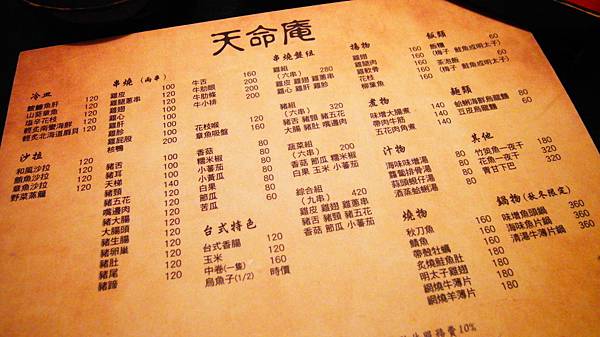 天命庵
冷皿
鱈魚肝 120
山葵章魚 120
塩辛花枝 120
輕炙南蠻海鮮
輕炙北海道扇貝 120
沙拉
和風沙拉 120
鮪魚沙拉 120
章魚沙拉 120
野菜蒸籠 120
串燒（兩串）
雞皮 100
雞腿蔥串 100
雞翅
雞心 100
雞肝 100
雞胗 100
雞屁股 120
核桃
豬舌 100
豬耳 100
天梯 140
豬頸 160
豬五花 120
嘴邊肉 120
大腸頭 120
豬生腸 120
豬卵巢 120
豬肚 120
豬尾 120
豬蹄 120
牛舌 160
牛肋眼 200
牛肋條 200
牛小排 200
花枝喉 160
章魚吸盤 160
香菇 80
糯米椒 80
小蕃茄 80
小黃瓜 80
白果 80
節瓜 60
苦瓜 60
台式特色
台式香腸 120
玉米 120
中卷(一隻) 160
烏魚子(1/2) 時價
串燒盤組
雞組 280
（六串）
雞皮 雞翅 雞蔥串
雞心 雞肝 雞胗
豬組 320
（六串）
豬舌 豬頸 豬五花
大腸 豬肚 嘴邊肉
蔬菜組 240
（六串）
香菇 節瓜 糯米椒
白果 玉米 小蕃茄
綜合組 420
（九串）
雞皮 雞翅 雞蔥串
豬舌 豬頸 豬五花
香菇 節瓜 小蕃茄
揚物
雞翅 160
雞腿肉 160
雞軟骨 160
花枝 160
柳葉魚 160
煮物
味噌大腸煮 160
帶肉牛筋 160
五花肉角煮 160
汁物
海味味噌湯 80
蘿蔔排骨湯 80
蒜頭蜆仔湯 80
酒蒸蛤蜊湯 80
燒物
秋刀魚 160
鯖魚 160
帶殼牡蠣 160
炙燒鮭魚肚 160
明太子雞翅 160
網燒牛薄片 180
網燒羊薄片 180
飯類
飯糰 60
(梅子 鮭魚或明太子)
茶泡飯 60
(梅子 鮭魚或明太子)
麵類
蛤蜊海鮮烏龍麵 80
豆皮烏龍麵 80
其他
竹筴魚一夜干 140
花魚一夜干 320
青甘下巴 320
鍋物(秋冬限定)
味噌魚頭鍋 360
海味魚片鍋 360
清湯牛薄片鍋 360
服務費10%